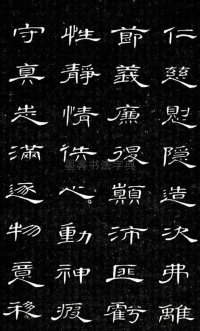 仁慈隱造次弗離
節義廉復顛沛匪虧
性靜情佚心動神疲
守真志滿逐物意移